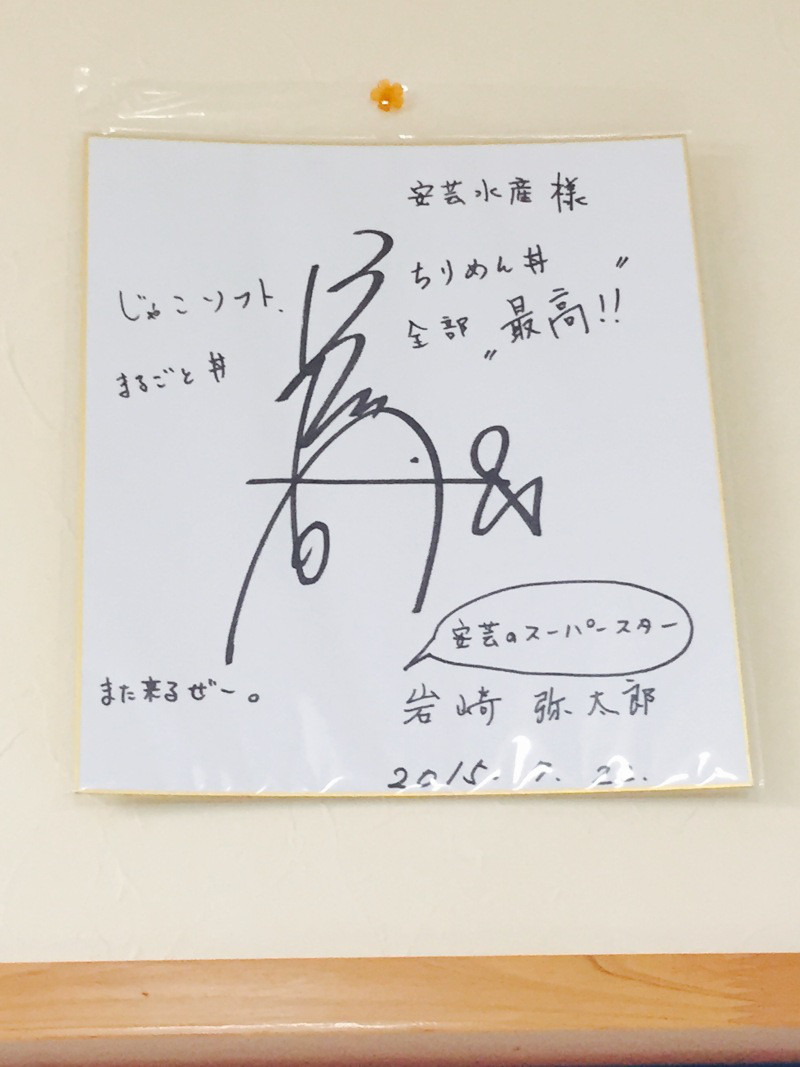 安芸水産様
ちりめん丼
全部〝最高!!〟
じゃこソフト、
まるごと丼
安芸のスーパースター
岩崎 弥太郎
また来るぜー。
2015.